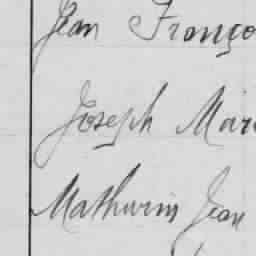 Jean Franço
Joseph Mari
Mathurin Jean